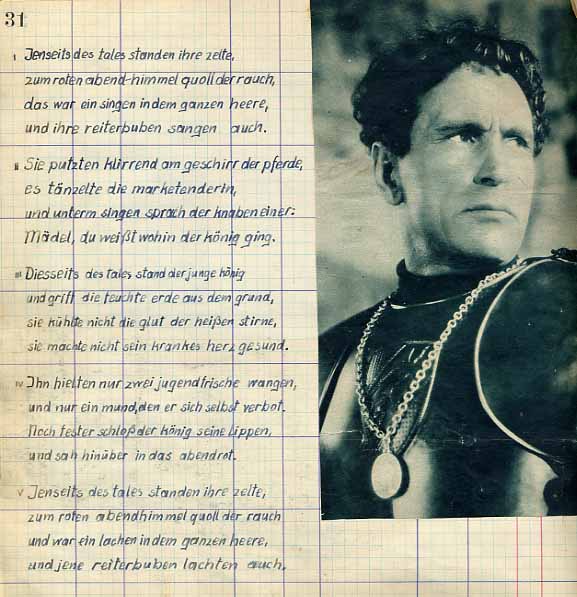 31
I Jenseits des tales standen ihre zelte,
zum roten abend-himmel quoll der rauch,
das war ein singen in dem ganzen heere,
und ihre reiterbuben sangen auch.
II Sie putzten klirrend am geschirr der pferde,
es tänzelte die marketenderin,
und unterm singen sprach der knaben einer:
Mädel, du weißt wohin der könig ging.
III Diesseits des tales stand der junge könig
und griff die feuchte erde aus dem grund,
sie kühlte nicht die glut der heißen stirne,
sie machte nicht sein krankes herz gesund.
IV Ihn hielten nur zwei jugendfrische wangen,
und nur ein mund, den er sich selbst verbot.
Noch fester schloß der könig seine lippen,
und sah hinüber in das abendrot.
V Jenseits des tales standen ihre zelte,
zum roten abendhimmel quoll der rauch
und war ein lachen in dem ganzen heere,
und jene reiterbuben lachten auch.